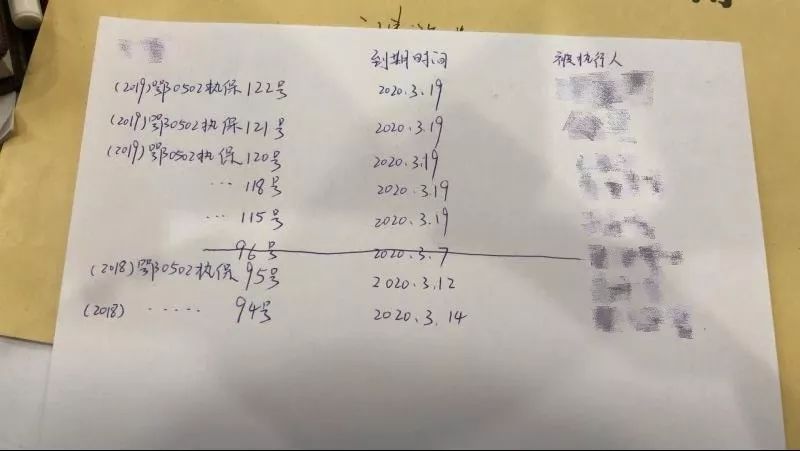 到期时间 被执行人
(2019)鄂0502执保122号 2020.3.19
(2019)鄂0502执保121号 2020.3.19
(2019)鄂0502执保120号 2020.3.19
… 118号 2020.3.19
… 115号 2020.3.19
96号 2020.3.7
(2018)鄂0502执保95号 2020.3.12
(2018) ····· 94号 2020.3.14